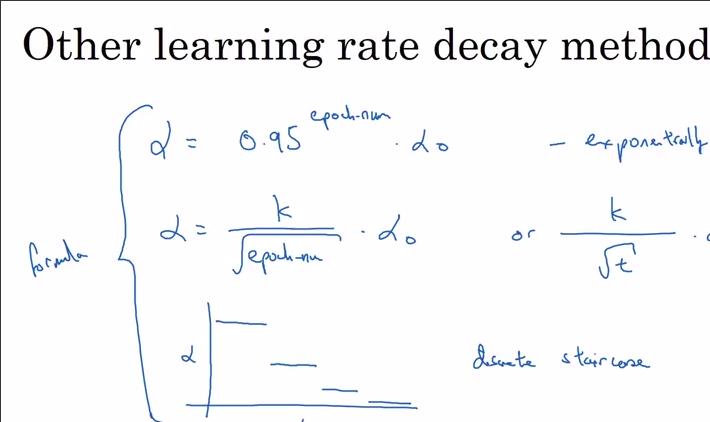 Other learning rate decay method
α = 0.95^epoch-num · α₀ – exponentially
formula
α = k / √epoch-nu · α₀ or k / √t ·
α
discrete staircase